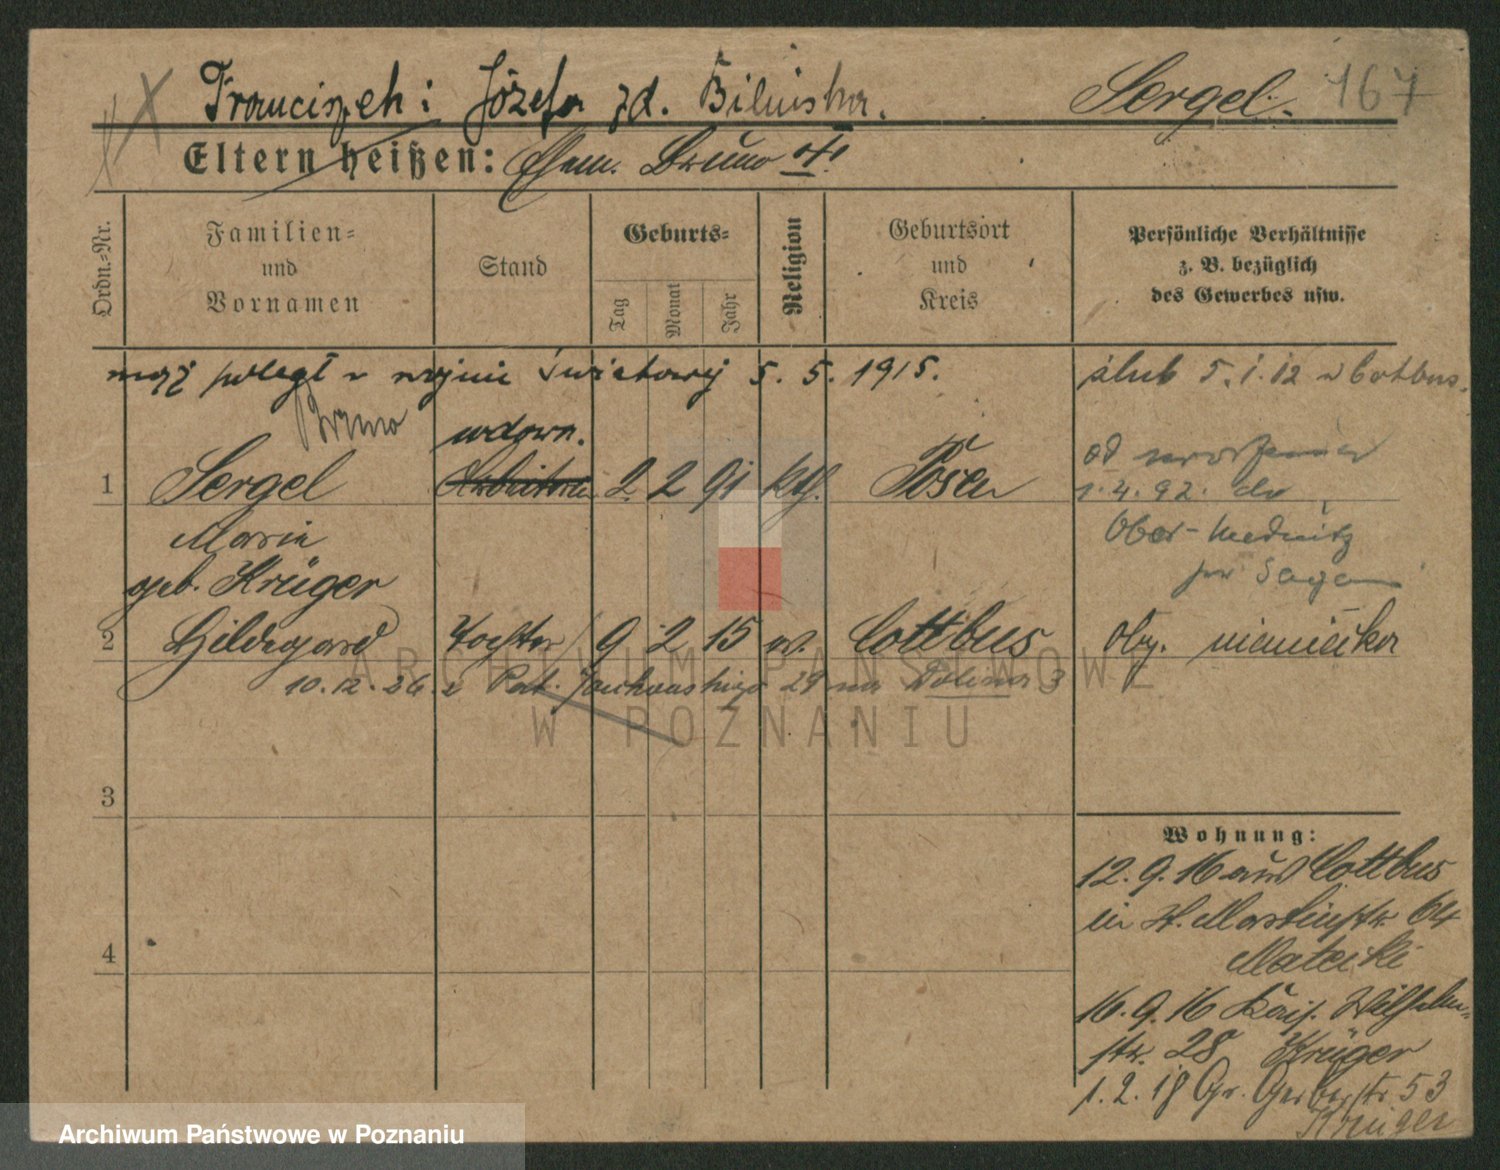 Franciszek i Józefa zd. Bilińska. Sergel. 167
Eltern heißen: Ehem. Bruno †.
Ordn.-Nr.
Familien-
und
Vornamen
Stand
Geburts-
Tag
Monat
Jahr
Religion
Geburtsort
und
Kreis
Persönliche Verhältnisse
z. B. bezüglich
des Gewerbes usw.
mąż poległ w wojnie światowej 5. 5. 1915. ślub 5. 1. 12 w Cottbus.
Bruno
wdowa.
1 Sergel Arbeiterin 2 2 91 kth. Posen
od urodzenia
1. 4. 92. do
Marie
Ober-
p. Sagan
geb. Krüger
2 Hildegard Tochter 9 2 15 ev. Cottbus oby. niemiecka
10. 12. 26. z Pat. Jackowskiego 29 na Dolina 3
3
4
Wohnung:
12. 9. 16 aus Cottbus
in St. Martinstr. 64
Matecki
16. 9. 16 Kais. Wilhelm-
str. 28 Krüger
1. 2. 18 Gr. Gerberstr. 53
Krüger
ARCHIWUM PAŃSTWOWE
W POZNANIU
Archiwum Państwowe w Poznaniu